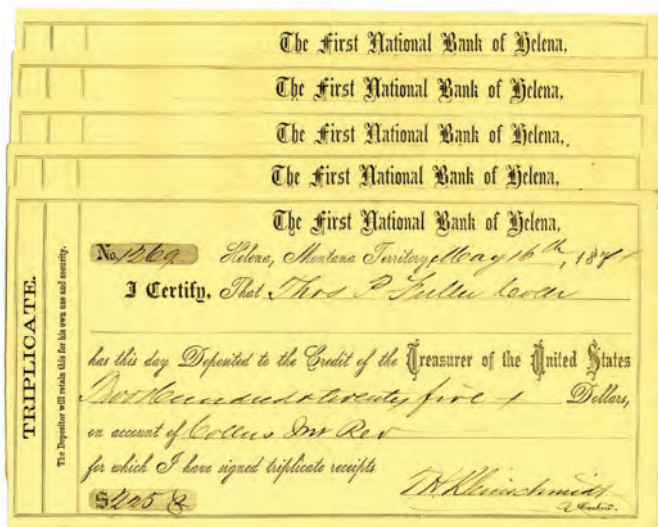 The First National Bank of Helena,
The First National Bank of Helena,
The First National Bank of Helena,
The First National Bank of Helena,
The First National Bank of Helena,
TRIPLICATE.
The Depositor will retain this for his own use and security.
No. 1269 Helena, Montana Territory, May 16th, 187
I Certify, That Thos P Fuller Coller
has this day Deposited to the Credit of the Treasurer of the United States
Two Hundred & twenty five Dollars,
on account of Collns Int Rev
for which I have signed triplicate receipts
$225
T H Kleinschmidt
Cashier.